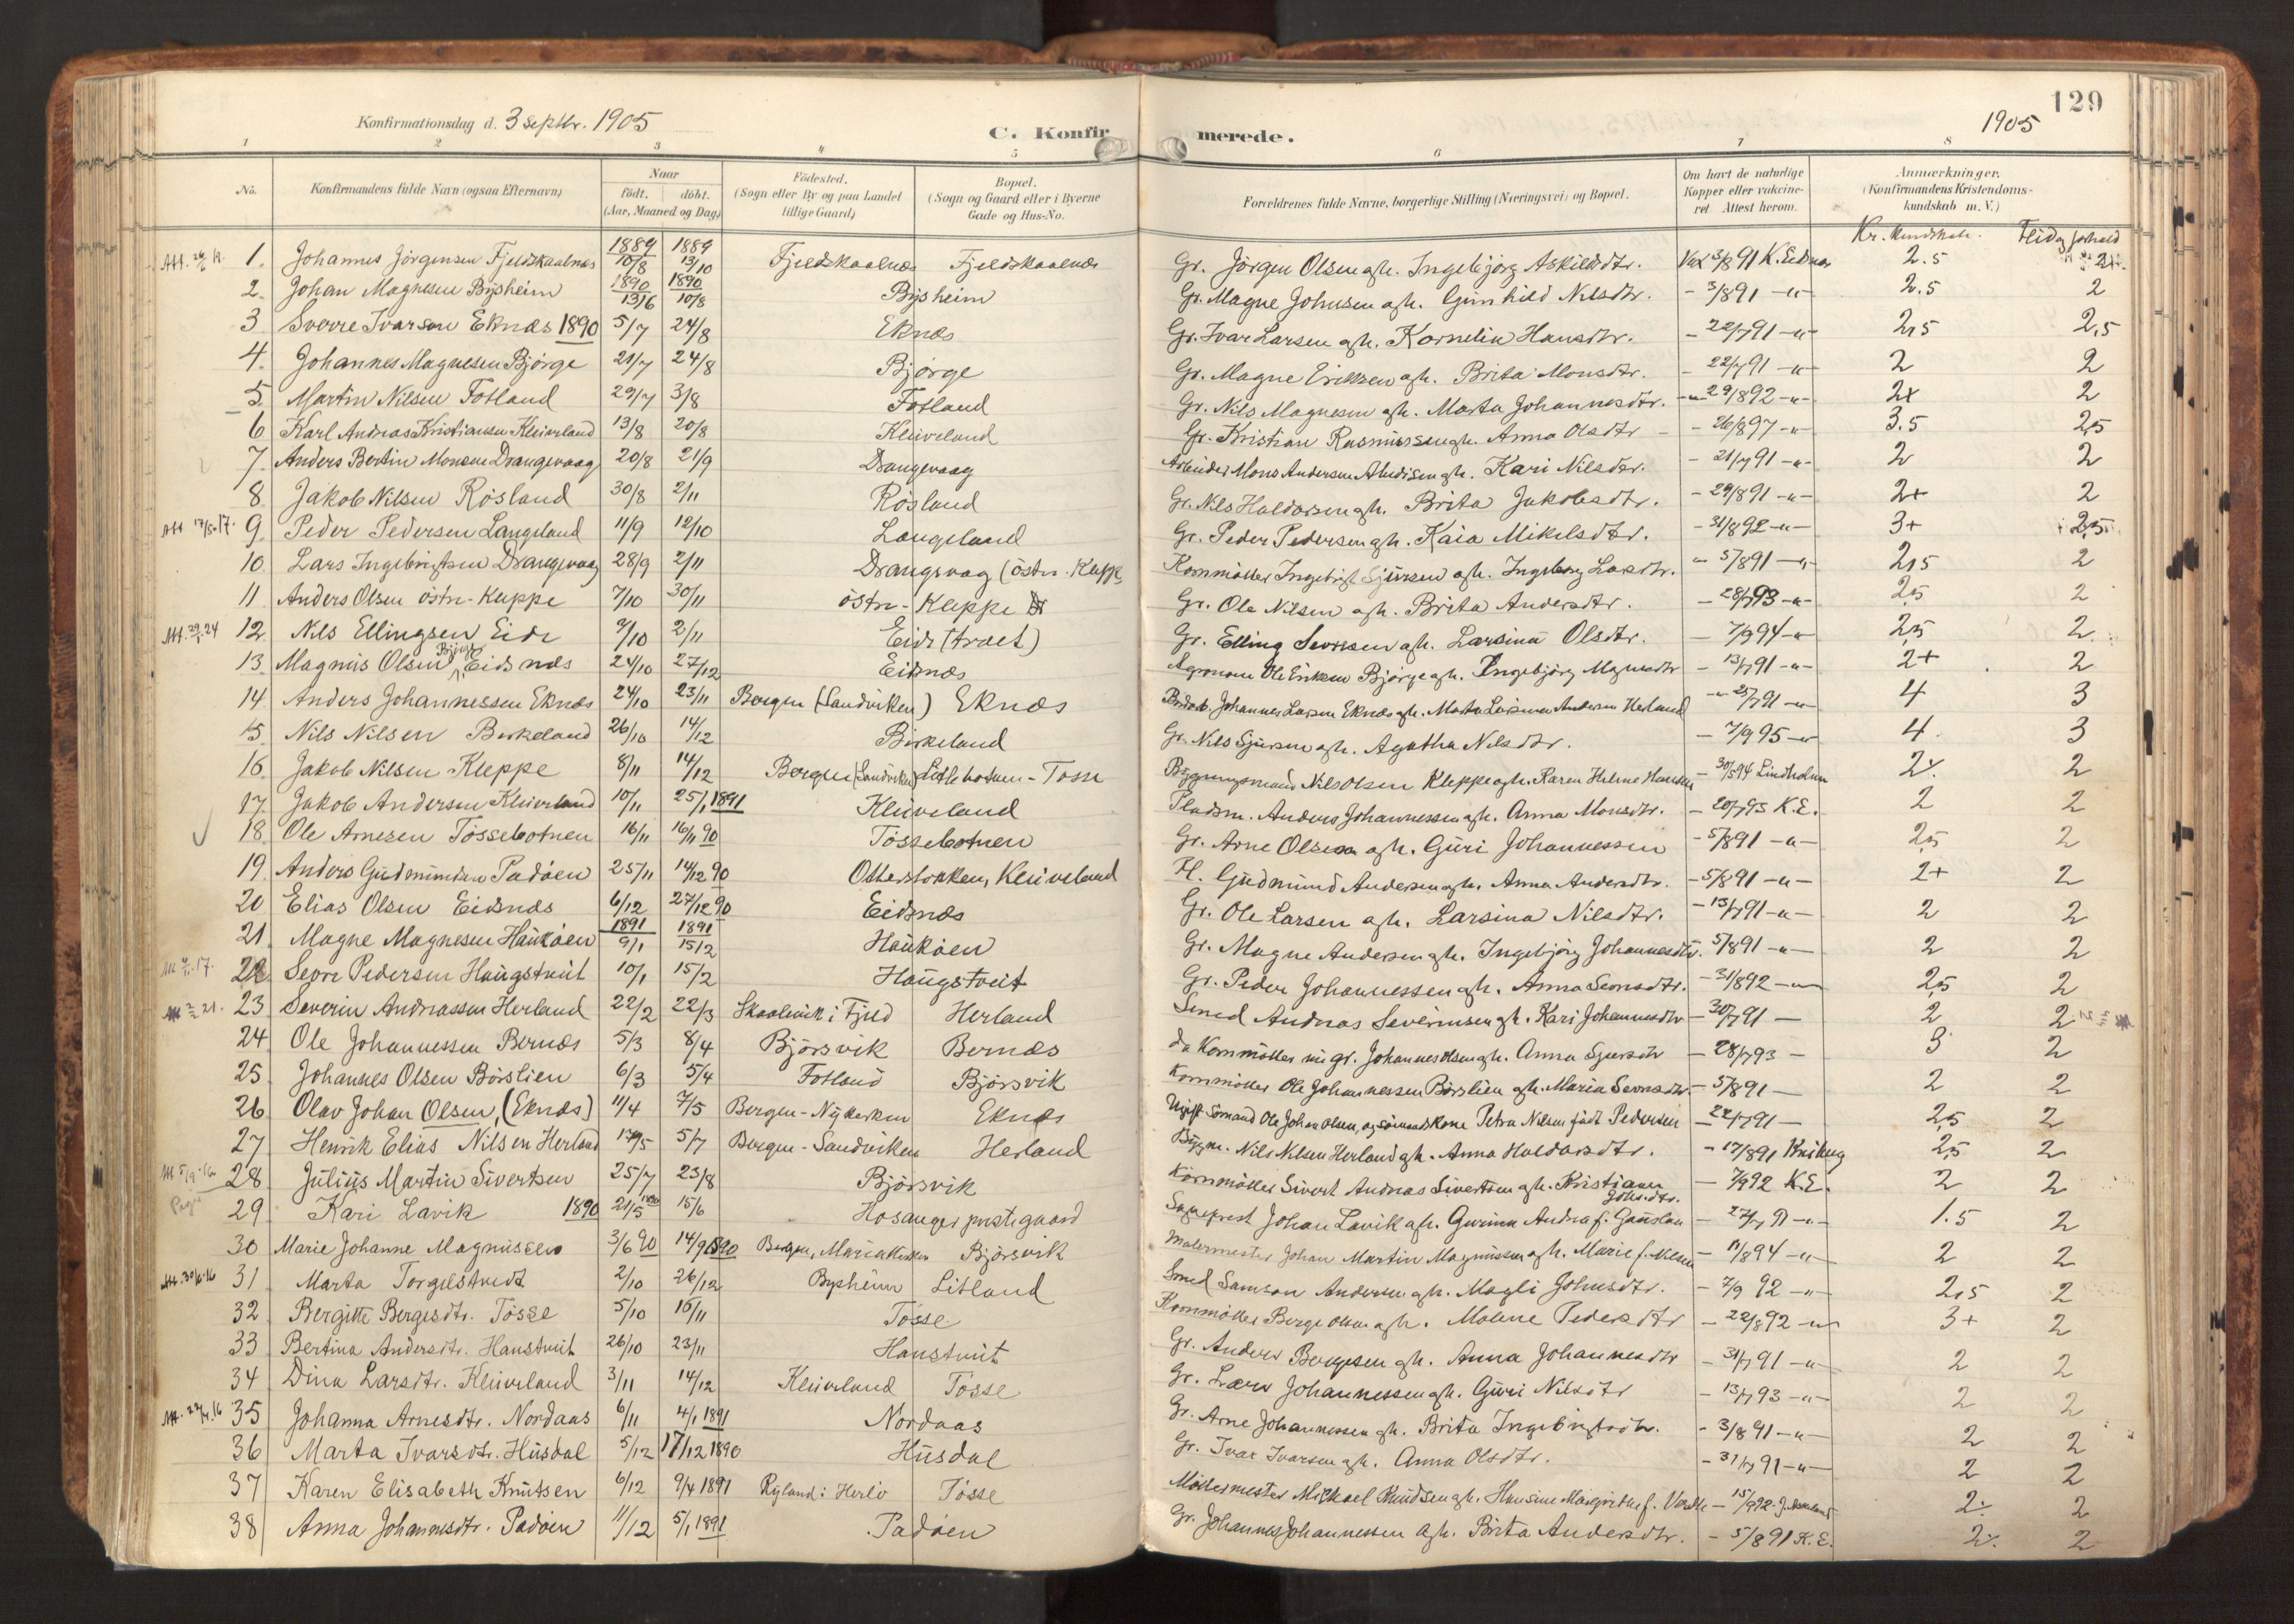 129
Konfirmationsdag d. 3 Septbr. 1905
C. Konfirmerede.
1905
1 2 3 4 5 6 7 8
No. Konfirmandens fulde Navn (ogsaa Efternavn) Naar födt. döbt. (Aar, Maaned og Dag) Födested. (Sogn eller By og paa Landet tillige Gaard) Bopæl. (Sogn og Gaard eller i Byerne Gade og Hus-No. Forældrenes fulde Navne, borgerlige Stilling (Næringsvei) og Bopæl. Om havt de naturlige Kopper eller vaccineret. Attest herom. Anmærkninger. (Konfirmandens Kristendomskundskab m. V.)
Kr. kundskab. Flid og forhold
1. Johannes Jörgensen Fjeldskaalnæs 1889 10/8 1889 13/10 Fjeldskaalnæs Fjeldskaalnæs Gr. Jörgen Olsen ogh. Ingebjörg Askildsdtr. Vac 3/8 91 K. Eidnes 2.5 2+
2. Johan Magnesen Bysheim 1890 13/6 1890 10/8 Bysheim Gr. Magne Johnsen ogh. Gunhild Nilsdtr. - 3/8 91 -"- 2.5 2
3 Sverre Ivarson Eknæs 1890 5/7 24/8 Eknæs Gr. Ivar Larsen ogh. Kornelia Hansdtr. - 22/7 91 -"- 2,5 2,5
4. Johannes Magnesen Bjørge 21/7 24/8 Bjørge Gr. Magne Eriksen ogh. Brita Monsdtr. - 22/7 91 -"- 2 2
5. Martin Nilsen Fotland 29/7 3/8 Fotland Gr. Nils Magnesen ogh. Marta Johannesdtr. - 29/8 92 -"- 2+ 2
6 Karl Andreas Kristiansen Kleiveland 13/8 20/8 Kleiveland Gr. Kristian Rasmussen ogh. Anna Olsdtr - 26/8 97 -"- 3.5 2,5
7. Anders Bertin Monsen Drangevaag 20/8 21/9 Drangevaag Arbeider Mons Andersen ogh. Kari Nilsdtr. - 21/7 91 -"- 2 2
8. Jakob Nilsen Rösland 30/8 2/11 Rösland Gr. Nils Haldorsen ogh. Brita Jakobsdtr. - 29/8 91 -"- 2+ 2
Att 17/5.17. 9. Peder Pedersen Langeland 11/9 12/10 Langeland Gr. Peder Pedersen ogh. Kaia Mikelsdtr. - 31/8 92 -"- 3+ 2,5
10. Lars Ingebrigtsen Drangevaag 28/9 2/11 Drangevaag (östr. Kleppe Kornmöller Ingebrigt Sjursen ogh. Ingeborg Larsdtr. - 5/8 91 -"- 2,5 2
11. Anders Olsen östre-Kleppe 7/10 30/11 östre-Kleppe Gr. Ole Nilsen ogh. Brita Andersdtr. - 28/7 93 -"- 2,5 2
12. Nils Ellingsen Eide 9/10 2/11 Eide (træet) Gr. Elling Sevrsen ogh. Larsina Olsdtr. - 7/9 94 -"- 2,5 2
13. Magnus Olsen Bjørge Eidsnæs 24/10 27/12 Eidsnæs Agronom Ole Eriksen Bjørge ogh. Ingebjörg Magnesdtr - 13/7 91 -"- 2+ 2
14 Anders Johannessen Eknæs 24/10 23/11 Bergen (Sandviken) Eknæs Johannes Larsen Eknæs ogh. Marta Larsina Andersen Herland - 25/7 91 -"- 4 3
15. Nils Nilsen Birkeland 26/10 14/12 Birkeland Gr. Nils Sjursen ogh. Agatha Nilsdtr. - 7/9 95 -"- 4. 3
16. Jakob Nilsen Kleppe 8/11 14/12 Bergen (Sandviken) Litlebotnen - Tosse Bygningsmand Nils Olsen Kleppe ogh. Karen Helene Hansen - 30/5 94 Lindholm 2. 2
17. Jakob Andersen Kleiveland 10/11 25/1 1891 Kleiveland Pladsm. Anders Johannessen ogh. Anna Monsdtr. - 20/7 95 K.E. 2 2
18. Ole Arnesen Tössebotnen 16/11 16/11 90 Tössebotnen Gr. Arne Olsen ogh. Guri Johannessen - 5/8 91 -"- 2,5 2
19. Anders Gudmundsen Padöen 25/11 14/12 90 Otterstokken, Kleiveland H. Gudmund Andersen ogh. Anna Andersdtr. - 5/8 91 -"- 2+ 2
20 Elias Olsen Eidsnæs 6/12 27/12 90 Eidsnæs Gr. Ole Larsen ogh. Larsina Nilsdtr. - 13/7 91 -"- 2 2
21. Magne Magnesen Haukåen 1891 9/1 1891 15/2 Haukåen Gr. Magne Andersen ogh. Ingebjörg Johannesdtr. 5/8 91 -"- 2 2
22. Sevre Pedersen Haugstveit 10/1 15/2 Haugstveit Gr. Peder Johannessen ogh. Anna Seversdtr. - 31/8 92 -"- 2,5 2
23 Severin Andreassen Herland 22/2 22/3 Skaalevik i Fjeld Herland Smed Andreas Severinsen ogh. Kari Johannesdtr - 30/7 91 - 2 2
24 Ole Johannessen Bernæs 5/3 8/4 Bjørsvik Bernæs Kornmöller nu gr. Johannes Olsen ogh. Anna Sjursdtr - 28/7 93 - 3 2
25 Johannes Olsen Börslien 6/3 5/4 Fotland Bjørsvik Kornmöller Ole Johannessen Börslien ogh. Maria Seversdtr. - 5/8 91 - 2 2
26 Olav Johan Olsen, (Eknæs) 11/4 7/5 Bergen-Nykirken Eknæs Ugift Sömand Ole Johan Olsen, og sömandskone Petra Nilsen födt Pedersen - 22/7 91 - 2,5 2
27 Henrik Elias Nilsen Herland 17/5 5/7 Bergen-Sandviken Herland Bygm. Nils Nilsen Herland ogh. Anna Haldorsdtr. - 17/8 91 2,5 2
28 Julius Martin Sivertsen 25/7 23/8 Bjørsvik Kornmöller Sivert Andreas Sivertsen ogh. Kristiane Johs.dtr. - 7/9 92 K.E. 2 2
29 Kari Lavik 1890 21/5 1890 15/6 Hosanger prestegaard Sogneprest Johan Lavik ogh. Gurina Andrea f. Gauslan - 27/7 91 -"- 1.5 2
30 Marie Johanne Magnussen 3/6 90 14/9 1890 Bergen, Mariakirken Bjørsvik Malermester Johan Martin Magnussen ogh. Marie f. Nilsen - 11/8 94 -"- 2 2
Att. 30/6.16 31 Marta Torgilstvedt 2/10 26/12 Bysheim Litland Smed Samson Andersen ogh. Magli Johnsdtr. - 7/9 92 -"- 2,5 2
32 Bergitte Bergesdtr. Tösse 5/10 16/11 Tösse Kornmöller Berge Olsen ogh. Malene Pedersdtr - 22/8 92 -"- 3+ 2
33 Bertina Andersdtr. Hanstveit 26/10 23/11 Hanstveit Gr. Anders Bergesen ogh. Anna Johannesdtr - 31/7 91 -"- 2 2
34 Dina Larsdtr. Kleiveland 3/11 14/12 Kleiveland Tösse Gr. Lars Johannessen ogh. Guri Nilsdtr - 13/7 93 -"- 2 2
35 Johanna Arnesdtr. Nordaas 6/11 4/1 1891 Nordaas Gr. Arne Johannessen ogh. Brita Ingebrigtsdtr. - 3/8 91 -"- 2 2
36 Marta Ivarsdtr. Husdal 5/12 17/12 1890 Husdal Gr. Ivar Ivarsen ogh. Anna Olsdtr. - 31/7 91 -"- 2 2
37 Karen Elisabeth Knutsen 6/12 9/4 1891 Ryland i Herlö Tösse Möllermester Mikael Knudsen ogh. Hansine Margrethe f. - 15/9 92 2. 2
38 Anna Johannesdtr. Padöen 11/12 5/1 1891 Padöen Gr. Johannes Johannessen ogh. Brita Andersdtr. - 5/8 91 K.E. 2. 2